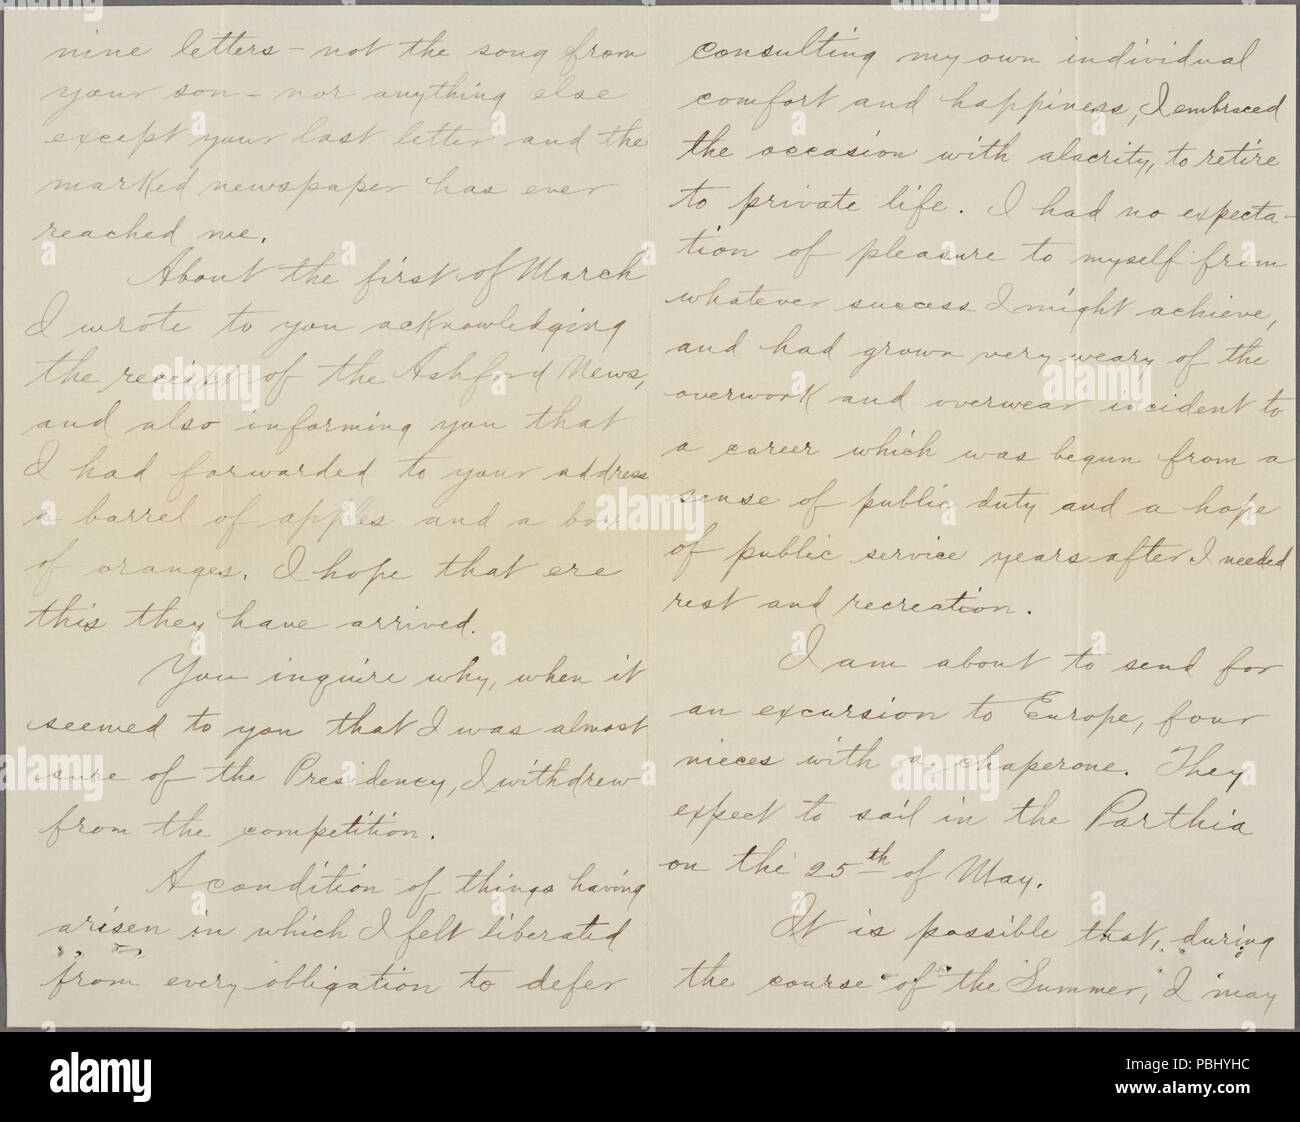 nine letters – not the song from
your son – nor anything else
except your last letter and the
marked newspaper has ever
reached me.
About the first of March
I wrote to you acknowledging
the receipt of the Ashford News,
and also informing you that
I had forwarded to your address
a barrel of apples and a box
of oranges. I hope that ere
this they have arrived.
You inquire why, when it
seemed to you that I was almost
sure of the Presidency, I withdrew
from the competition.
A condition of things having
arisen in which I felt liberated
from every obligation to defer
consulting my own individual
comfort and happiness, I embraced
the occasion with alacrity, to retire
to private life. I had no expecta-
tion of pleasure to myself from
whatever success I might achieve,
and had grown very weary of the
overwork and overwear incident to
a career which was begun from a
sense of public duty and a hope
of public service years after I needed
rest and recreation.
I am about to send for
an excursion to Europe, four
nieces with a chaperone. They
expect to sail in the Parthia
on the 25th of May.
It is possible that, during
the course of the Summer, I may
alamy
Image ID: PBHYHC
www.alamy.com